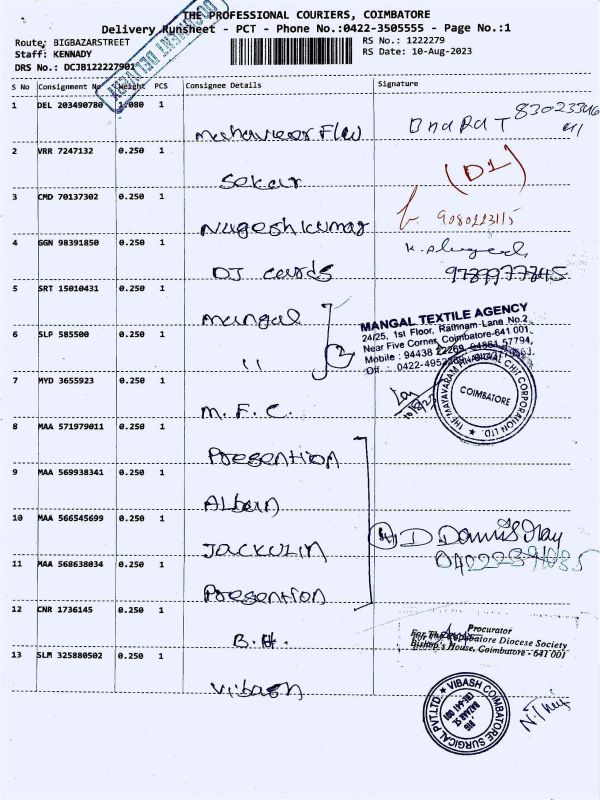 THE PROFESSIONAL COURIERS, COIMBATORE
Delivery Runsheet - PCT - Phone No.:0422-3505555 - Page No.:1
Route: BIGBAZARSTREET
RS No.: 1222279
Staff: KENNADY
RS Date: 10-Aug-2023
DRS No.: DCJB122227901
S No Consignment No Weight PCS Consignee Details Signature
1 DEL 203490780 1.080 1
BHARAT
2 VRR 7247132 0.250 1
Sekar
(D1)
3 CMD 70137302 0.250 1
Nagesh kumar
4 GGN 98391850 0.250 1
DJ cards
5 SRT 15010431 0.250 1
Mangal
MANGAL TEXTILE AGENCY
24/25, 1st Floor, Rathnam Lane No.2,
Near Five Corner, Coimbatore-641 001.
6 SLP 585500 0.250 1
"
2
Mobile : 94438 22269, 94861 57794,
Off. : 0422-
THE MAYAVARAM FINANCIAL CHIT CORPORATION LTD.
COIMBATORE
7 MYD 3655923 0.250 1
M. F. C.
8 MAA 571979011 0.250 1
Presention
9 MAA 569938341 0.250 1
Albain
10 MAA 566545699 0.250 1
Jackulin
11 MAA 568638034 0.250 1
Presention
12 CNR 1736145 0.250 1
B. H.
Procurator
For The Coimbatore Diocese Society
Bishop's House, Coimbatore - 641 001
13 SLM 325880502 0.250 1
Vibash
VIBASH COIMBATORE SURGICAL PVT.LTD.
BIG
BAZAAR ST.
CBE-641 001